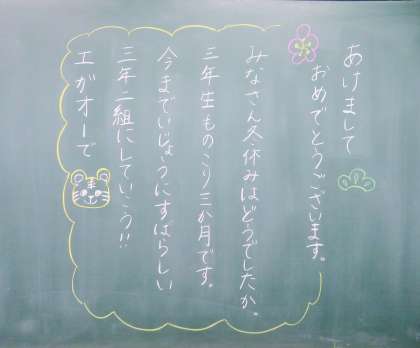 あけまして
おめでとうございます。
みなさん冬休みはどうでしたか。
三年生ものこり三か月です。
今までいじょうにすばらしい
三年二組にしていこう!!
エがオーで